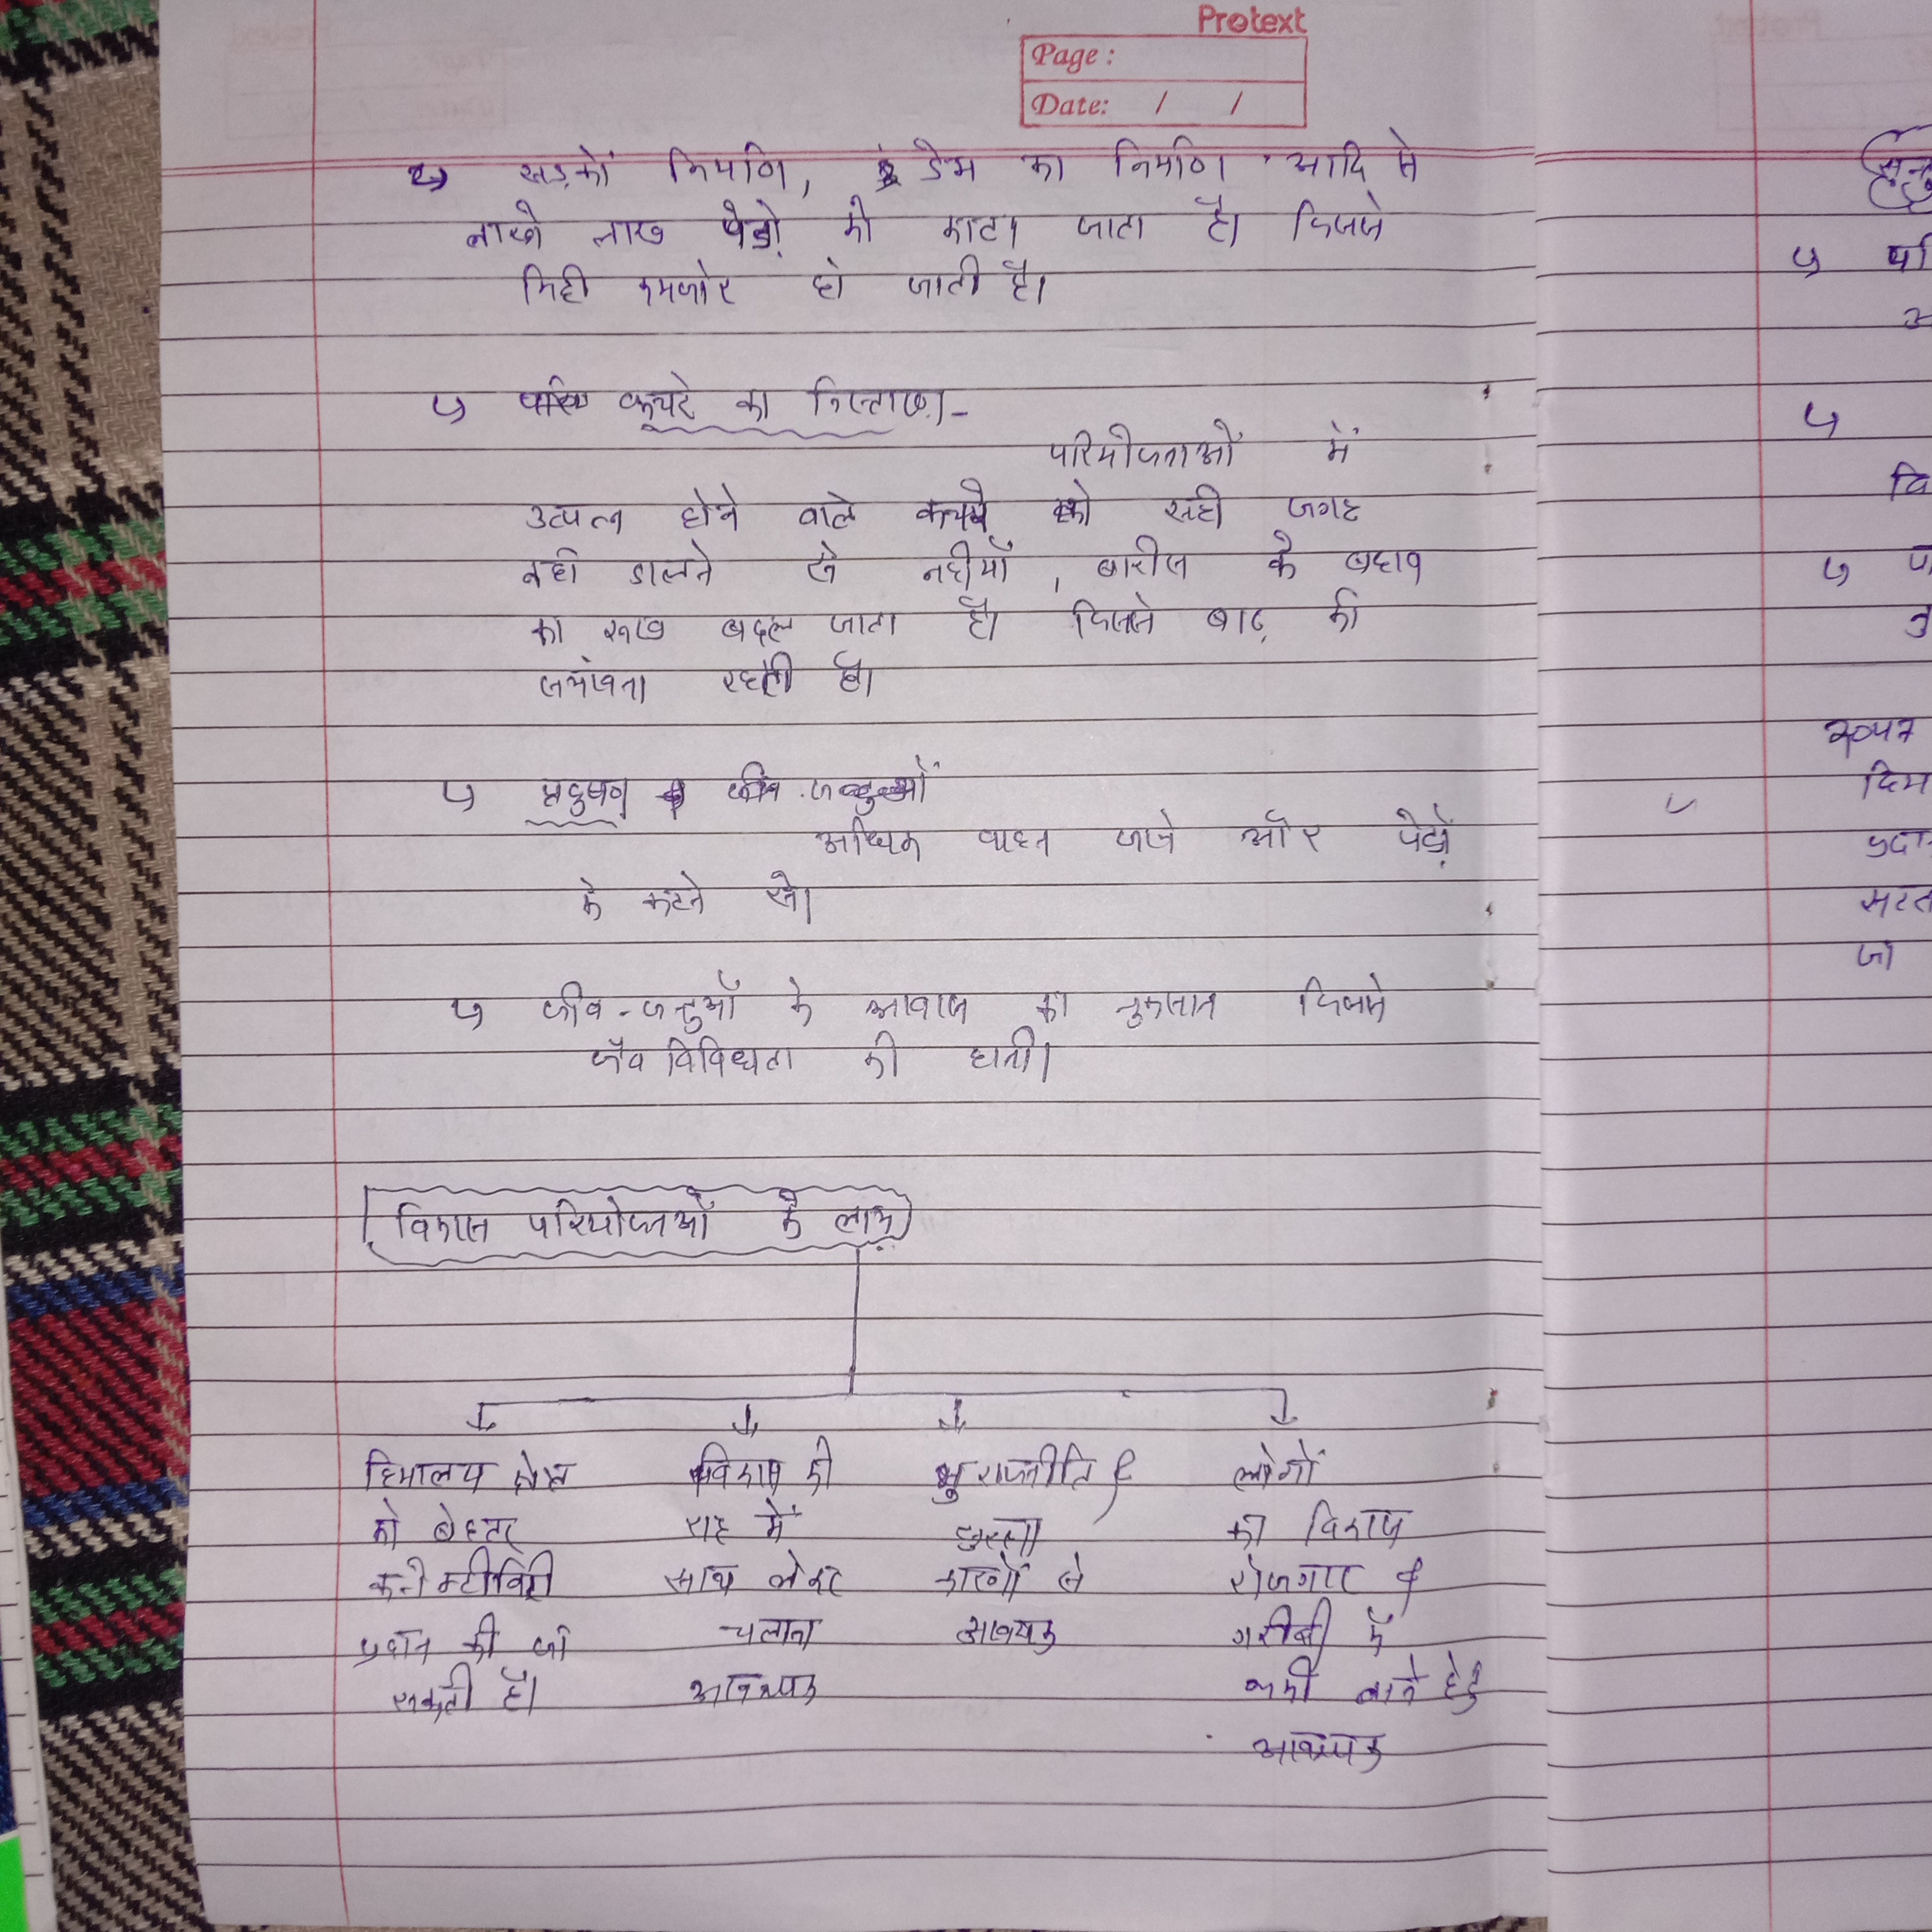 Protext
Page :
Date: / /
सड़कों निर्माण, डेम का निर्माण आदि से
लाखो लाख पेड़ो को काटा जाता है। जिससे
मिट्टी कमजोर हो जाती है।
कचरे का निस्तारण-
परियोजनाओं में
उत्पन्न होने वाले कचरे को सही जगह
नही डालने से नदीयाँ, बारीस के बहाव
का रूख बदल जाता है। जिससे बाढ़ की
संभावना रहती है।
प्रदुषण जीव-जन्तुओं
अधिक वाहन जाने और पेड़ों
के कटने से।
जीव-जन्तुओं के आवास का नुकसान जिससे
जैव विविधता की हानी।
विकास परियोजनाओं के लाभ
हिमालय क्षेत्र विकास की भु राजनीति व लोगों
को बेहतर राह में सुरक्षा का विकास
कनेक्टीविटी साथ लेकर कारणों से रोजगार व
प्रदान की जा चलाना आवश्यक गरीबी में
सकती है। आवश्यक कमी लाने हेतु
आवश्यक